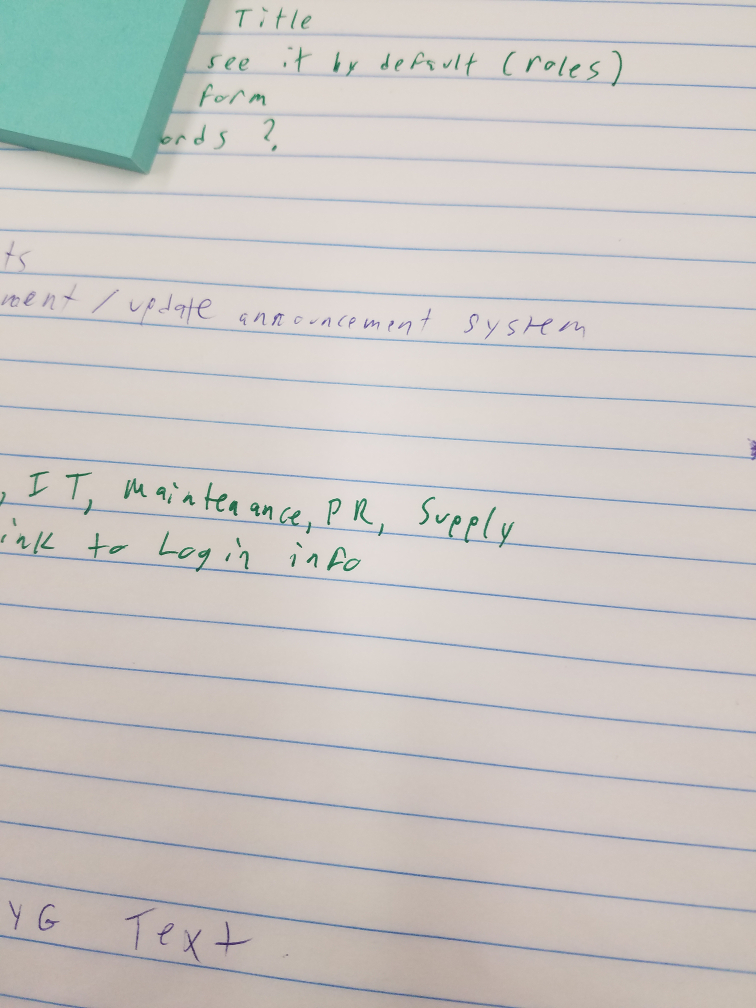 Title
see it by default (roles)
form
ords ?
ts
ment / update announcement system
, IT, Maintenance, PR, Supply
ink to Login info
YG Text